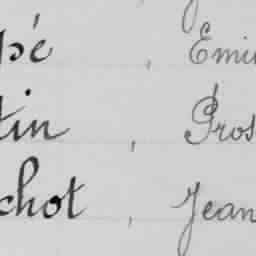 pé, Emi
tin, Pros
chot, Jean